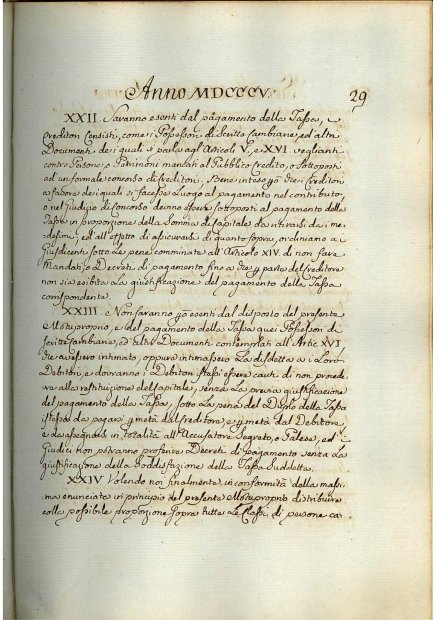 Anno MDCCCV.
29
XXII. Saranno esenti dal pagamento della Tassa, i
Creditori Consisti, come i Possessori di Scritte Cambiarie, ed altri
Documenti dei quali si parla agl'Articoli V, e XVI veglianti
contro Persone, o Patrimoni mancati al Pubblico Credito, o Sottoposti
ad un formale concorso di Creditori. Bene inteso che i Creditori
a favore dei quali si facesse Luogo al pagamento nel contributo,
o nel Giudizio di Concorso devino essere sottoposti al pagamento della
Tassa in proporzione della Somma di Capitale da ritirarsi da i me-
desimi; ed all'effetto di assicurarsi di quanto sopra, ordiniamo a i
Giusdicenti sotto le pene comminate all'Articolo XIV. di non fare
Mandati, o Decreti di pagamento fino a che per parte del creditore
non sia esibita la giustificazione del pagamento della Tassa
corrispondente.
XXIII. Non saranno poi esenti dal disposto del presente
Motuproprio, e del pagamento della Tassa quei Possessori di
Scritte Cambiarie, ed altri Documenti contemplati all'Artic. XVI
che avessero intimato, oppure intimassero la disdetta a i Loro
Debitori, e dovranno i Debitori stessi essere cauti di non proced-
ere alla restituzione del capitale, senza la previa giustificazione
del pagamento della Tassa, sotto la pena del Duplo della Tassa
istessa da pagarsi per metà dal Creditore, e per metà dal Debitore
e da assegnarsi in totalità all'Accusatore Segreto, o Palese, ed i
Giudici non potranno proferire Decreti di pagamento senza la
giustificazione della soddisfazione della Tassa suddetta.
XXIV. Volendo noi finalmente in conformità della massi-
ma enunciata in principio del presente Motuproprio distribuire
colla possibile proporzione sopra tutte le classi di persone ca-